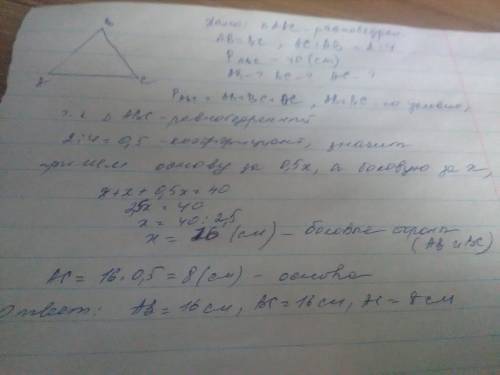 B
A
C
Дано: △ABC - равнобедрен
AB = BC, AC:AB = 2:4
P ABC = 40 (см)
AB - ? BC - ? AC - ?
P ABC = AB+BC+AC, AB=BC по условию,
т.к △ ABC - равнобедренный
2:4 = 0,5 - коэффициент, значит
примем основу за 0,5x, а боковую за x,
x+x+0,5x=40
2,5x = 40
x = 40:2,5
x = 16 (см) - боковые стороны
(AB и BC)
AC = 16·0,5 = 8 (см) - основа
Ответ: AB = 16 см, BC = 16 см, AC = 8 см